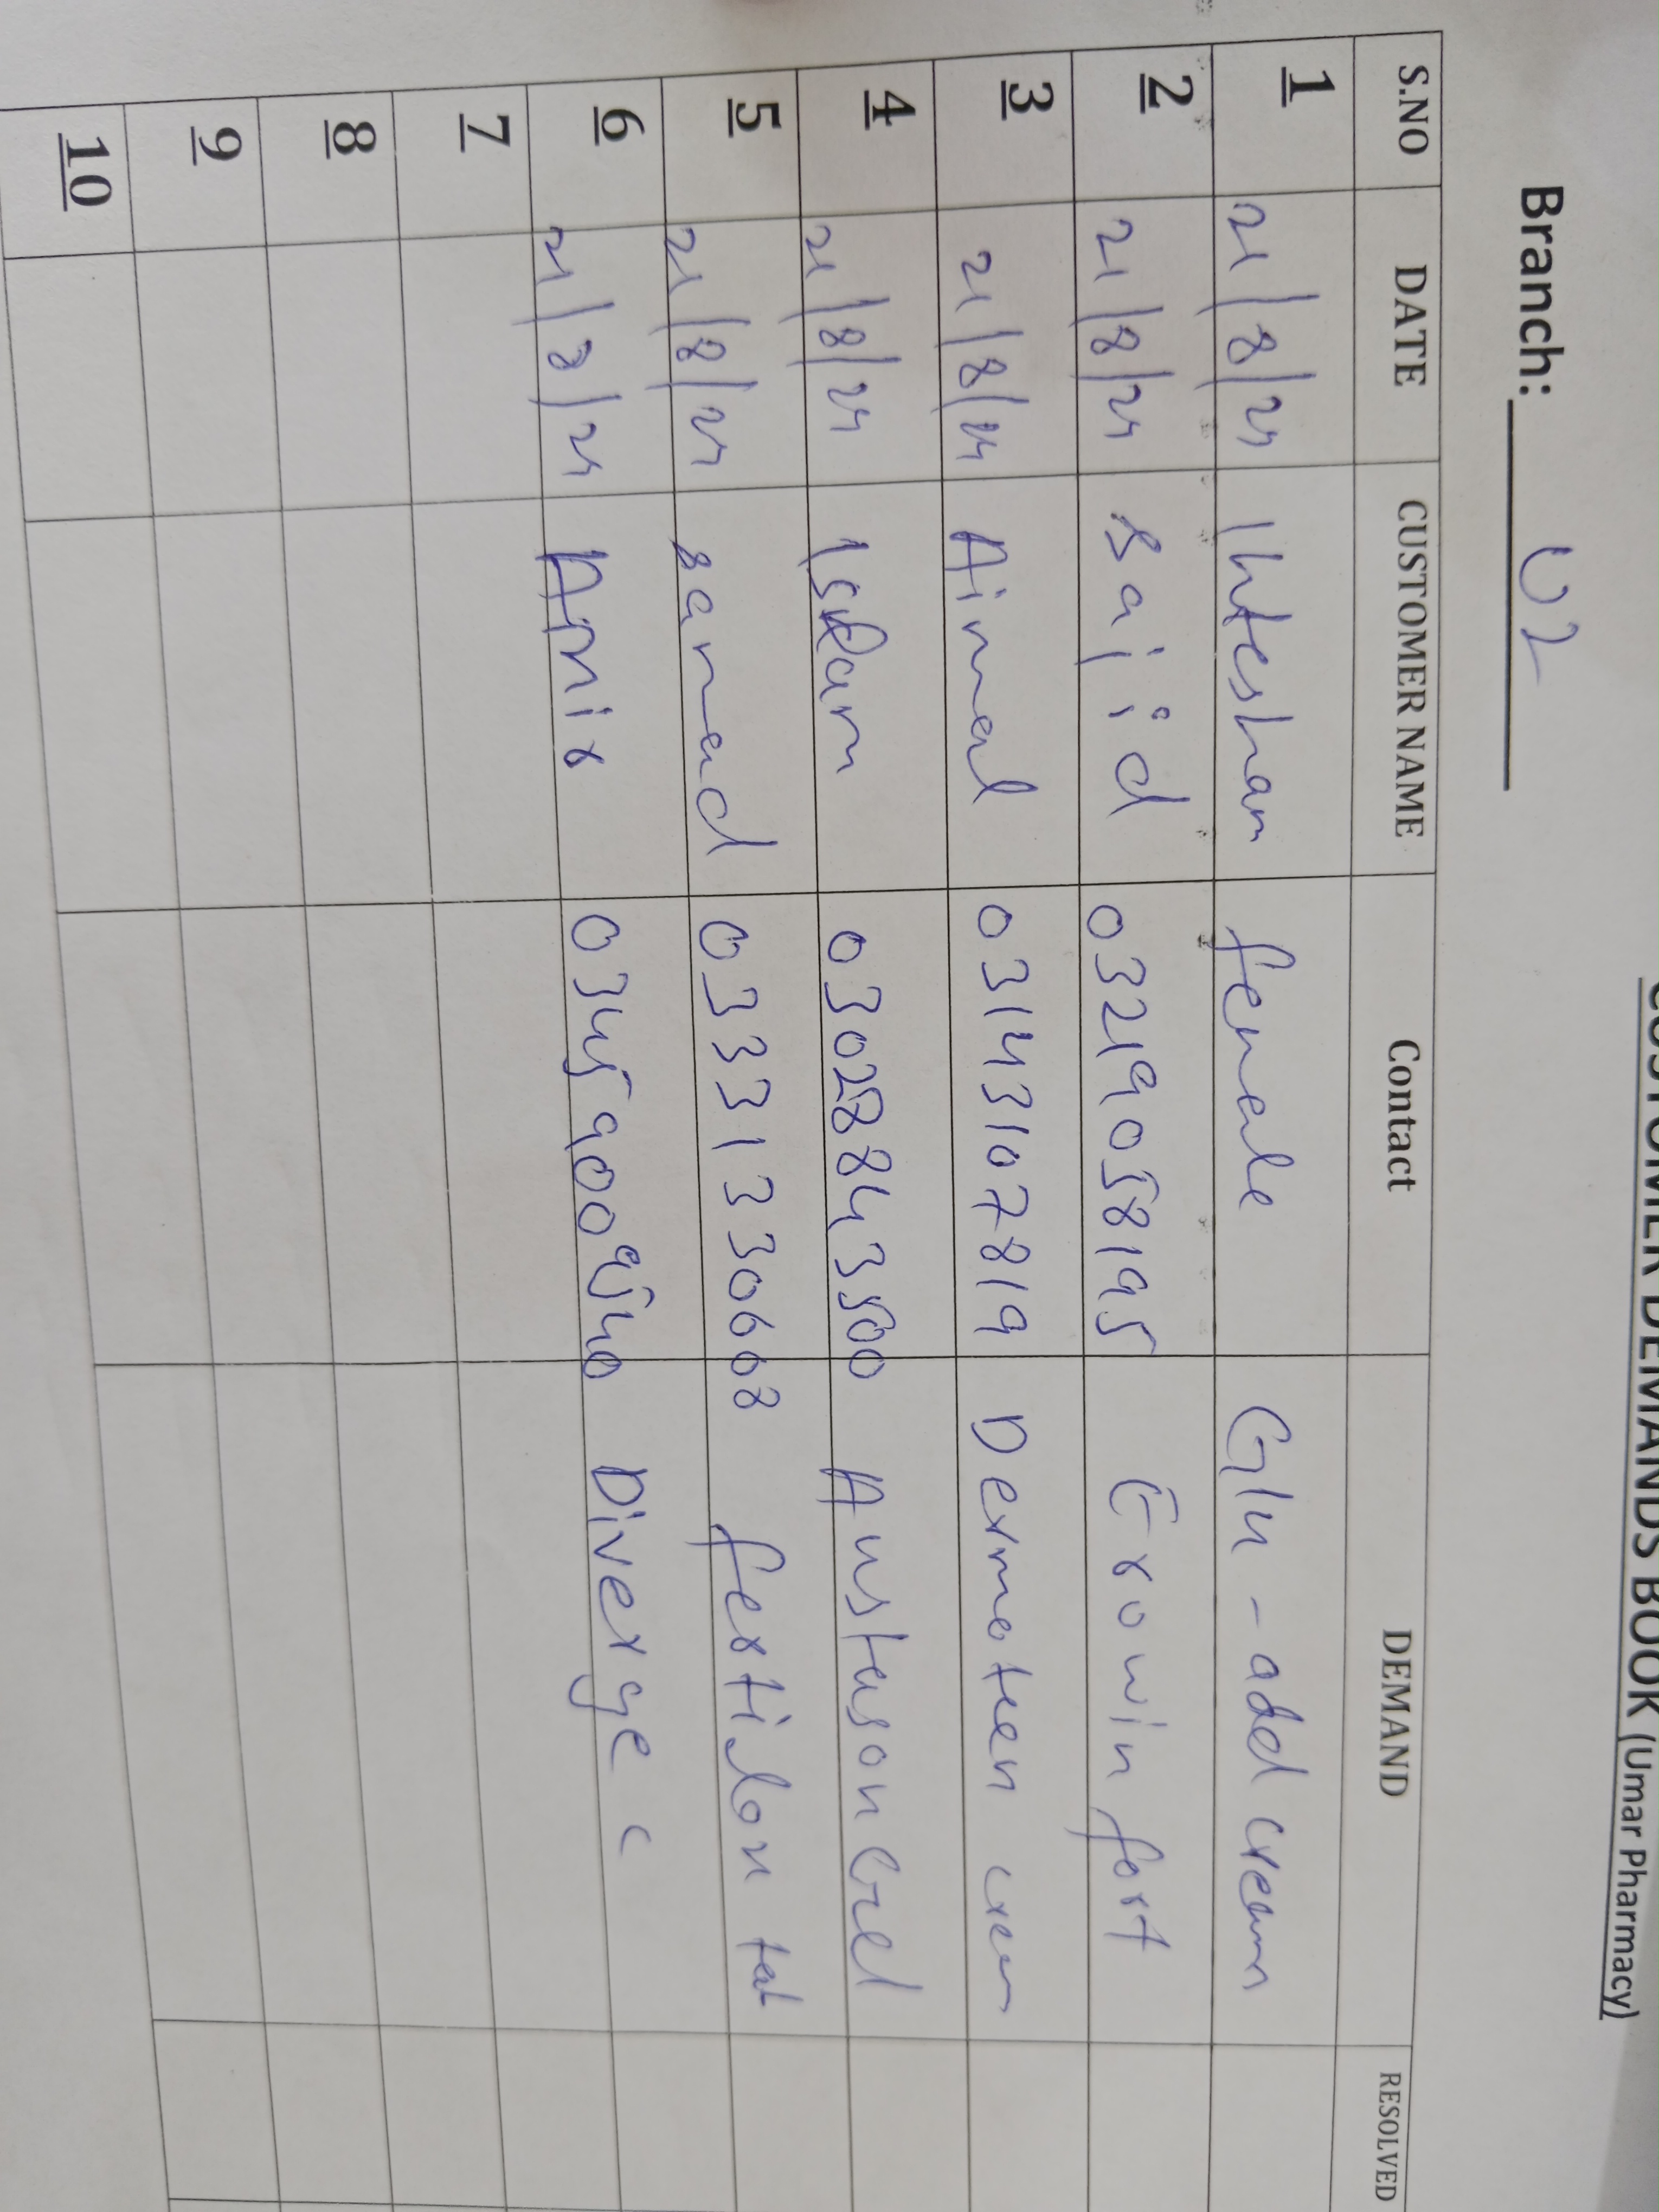 CUSTOMER DEMANDS BOOK (Umar Pharmacy)
Branch: 02
S.NO DATE CUSTOMER NAME Contact DEMAND RESOLVED
1 21/8/24 Ihtesham female Glu-add cream
2 21/8/24 Sajid 03219058195 Erowin fort
3 21/8/24 Aimal 03143107819 Dermoteen cream
4 21/8/24 Islam 03028843500 Austuson Gel
5 21/8/24 samad 03331330668 fertilon tab
6 21/8/24 03459009540 Diverge c
7
8
9
10